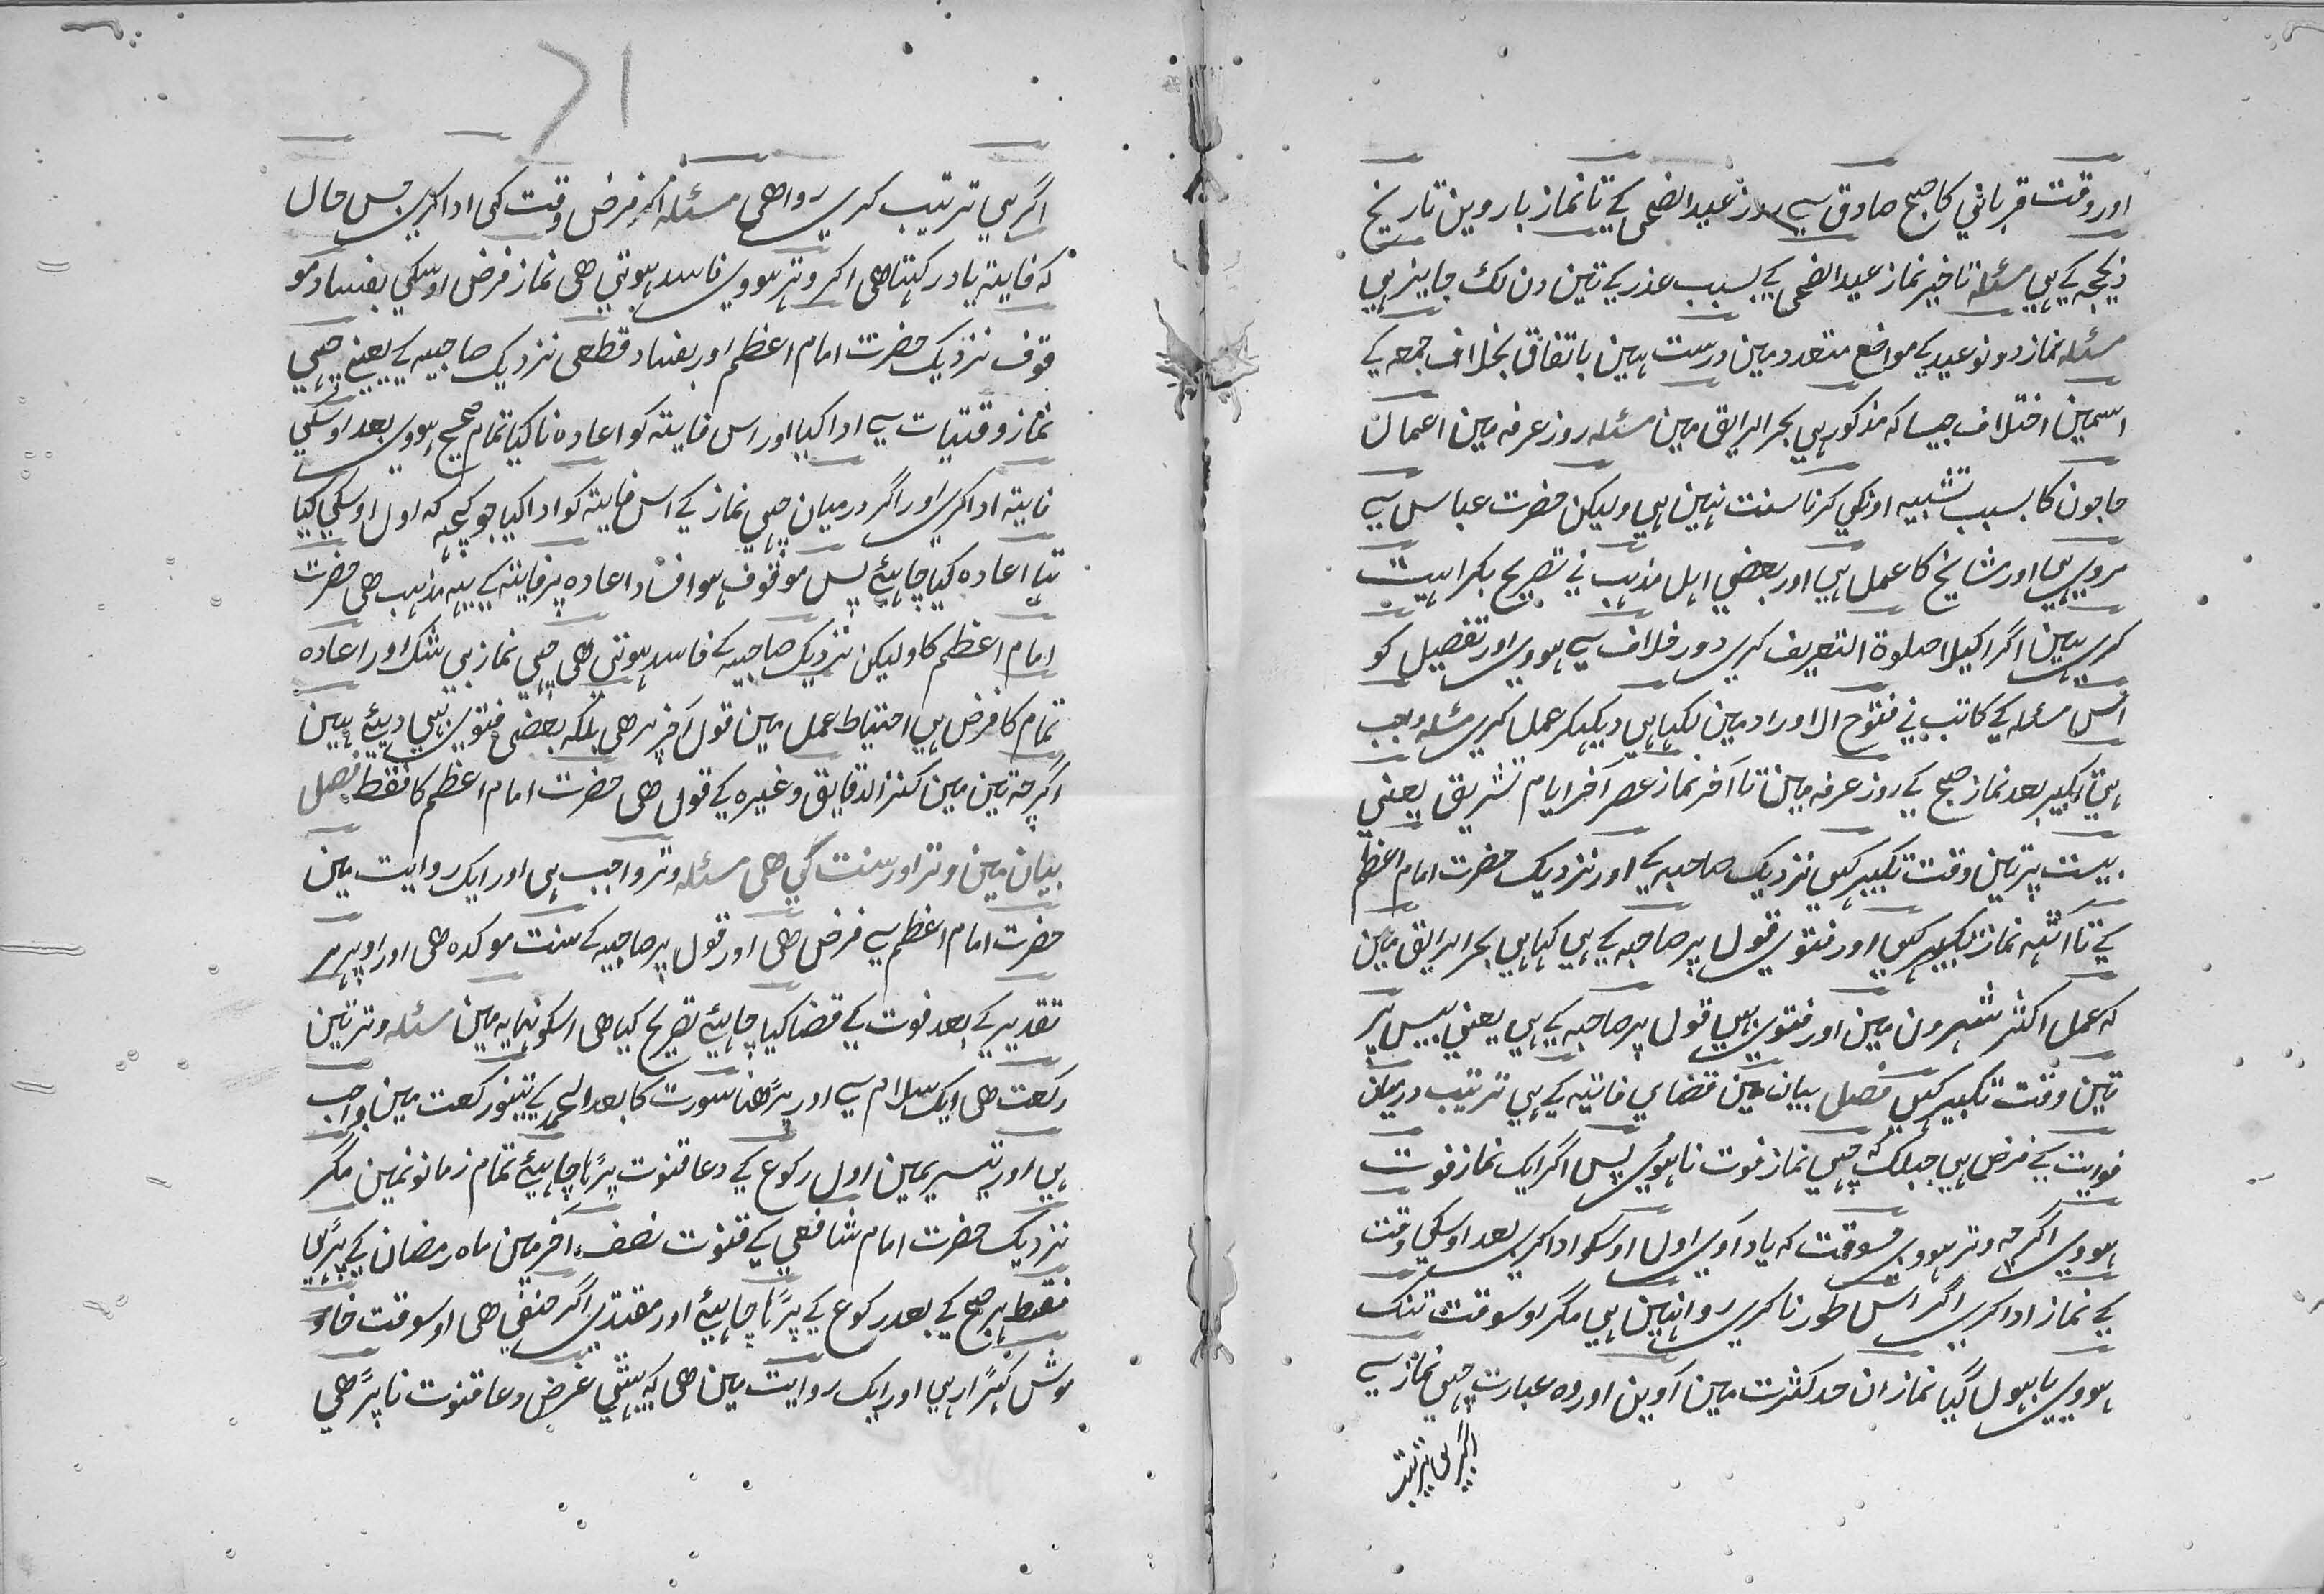 اور وقت قربانی کا صبح صادق سے روز عید الضحی کے تا نماز بارویں تاریخ
ذیحجہ کے ہی مسئلہ تاخیر نماز عید الضحی کے بسبب عذر کے تین دن لک جایز ہی
مسئلہ نماز دونو عید کے مواضع متعدد مین درست ہین باتفاق بخلاف جمعہ کے
اسمین اختلاف جیسا کہ مذکور ہی بحر الرایق مین مسئلہ روز عرفہ مین اعمال
حاجون کا بسبب تشبیہ اونکی کرنا سنت نہین ہی ولیکن حضرت عباس سے
مروی ہی اور مشایخ کا عمل ہی اور بعضی اہل مذہب نے تصریح بکراہیت
کری ہین اگر اکیلا صلوۃ التعریف کری دور خلاف سے ہووی اور تفصیل کو
اس مسئلہ کے کاتب نے فتوح الاوراد مین لکہیا ہی دیکہکر عمل کری مسئلہ واجب
ہی تکبیر بعد نماز صبح کے روز عرفہ مین تا آخر نماز عصر آخر ایام تشریق یعنی
بیست پر تین وقت تکبیر کہی نزدیک صاحبیہ کے اور نزدیک حضرت امام اعظم
کے تا آٹہہ نماز تکبیر کہی اور فتوی قول پر صاحبیہ کے ہی کہا ہی بحر الرایق مین
کہ عمل اکثر شہرون مین اور فتوی بہی قول پر صاحبیہ کے ہی یعنی بیس پر
تین وقت تکبیر کہی فصل بیان مین قضای فایتہ کے ہی ترتیب درمیان
فوایت کے فرض ہی جبلک کہ چہی نماز فوت نا ہوی پس اگر ایک نماز فوت
ہووی اگرچہ وتر ہووی جسوقت کہ یاد آوی اول اوسکو ادا کری بعد اوسکی وقت
کے نماز ادا کری اگر اس طور نا کری روا نہین ہی مگر اوسوقت تنک
ہووی یا بہول گیا نمازان حد کثرت مین آوین اور وہ عبارت چہی نماز سے
اگر بی ترتیب
اگر بی ترتیب کری روا ھی مسئلہ اگر فرض وقت کی ادا کری جس حال
کہ فایتہ یاد رکہتا ھی اگر وتر ہووی فاسد ہوتی ھی نماز فرض اوسکی بفساد مو
قوف نزدیک حضرت امام اعظم اور بفساد قطعی نزدیک صاحبیہ کے یعنی چہی
نماز وقتیات سے ادا کیا اور اس فایتہ کو اعادہ نا کیا تمام صحیح ہووی بعد اوسکی
فایتہ ادا کری اور اگر درمیان چہی نماز کے اس فایتہ کو ادا کیا جو کچہہ کہ اول اوسکی کیا
تہا اعادہ کیا چاہیئے پس موقوف ہوا فساد اعادہ پر فایتہ کے یہہ مذہب ھی حضرت
امام اعظم کا ولیکن نزدیک صاحبیہ کے فاسد ہوتی ھی چہی نماز بی شک اور اعادہ
تمام کا فرض ہی احتیاط عمل مین قول آخر پر ھی بلکہ بعضی فتوی بہی دیئے ہین
اگرچہ تین مین کنز الدقایق وغیرہ کے قول ھی حضرت امام اعظم کا فقط فصل
بیان مین وتر اور سنت کی ھی مسئلہ وتر واجب ہی اور ایک روایت مین
حضرت امام اعظم سے فرض ھی اور قول پر صاحبیہ کے سنت موکدہ ھی اور اوپر ہر
تقدیر کے بعد فوت کے قضا کیا چاہیئے تصریح کیا ھی اسکو نہایہ مین مسئلہ وتر تین
رکعت ھی ایک سلام سے اور پڑھنا سورت کا بعد الحمد کے تینو رکعت مین واجب
ہی اور تیسریمین اول رکوع کے دعا قنوت پڑہا چاہیئے تمام زمانونمین مگر
نزدیک حضرت امام شافعی کے قنوت نصف آخر مین ماہ رمضان کے پڑہی
فقط ہر صبح کے بعد رکوع کے پڑہا چاہیئے اور مقتدی اگر حنفی ھی اوسوقت خا
موش کہڑا رہی اور ایک روایت مین ھی کہ بیٹہی غرض دعا قنوت نا پڑھی